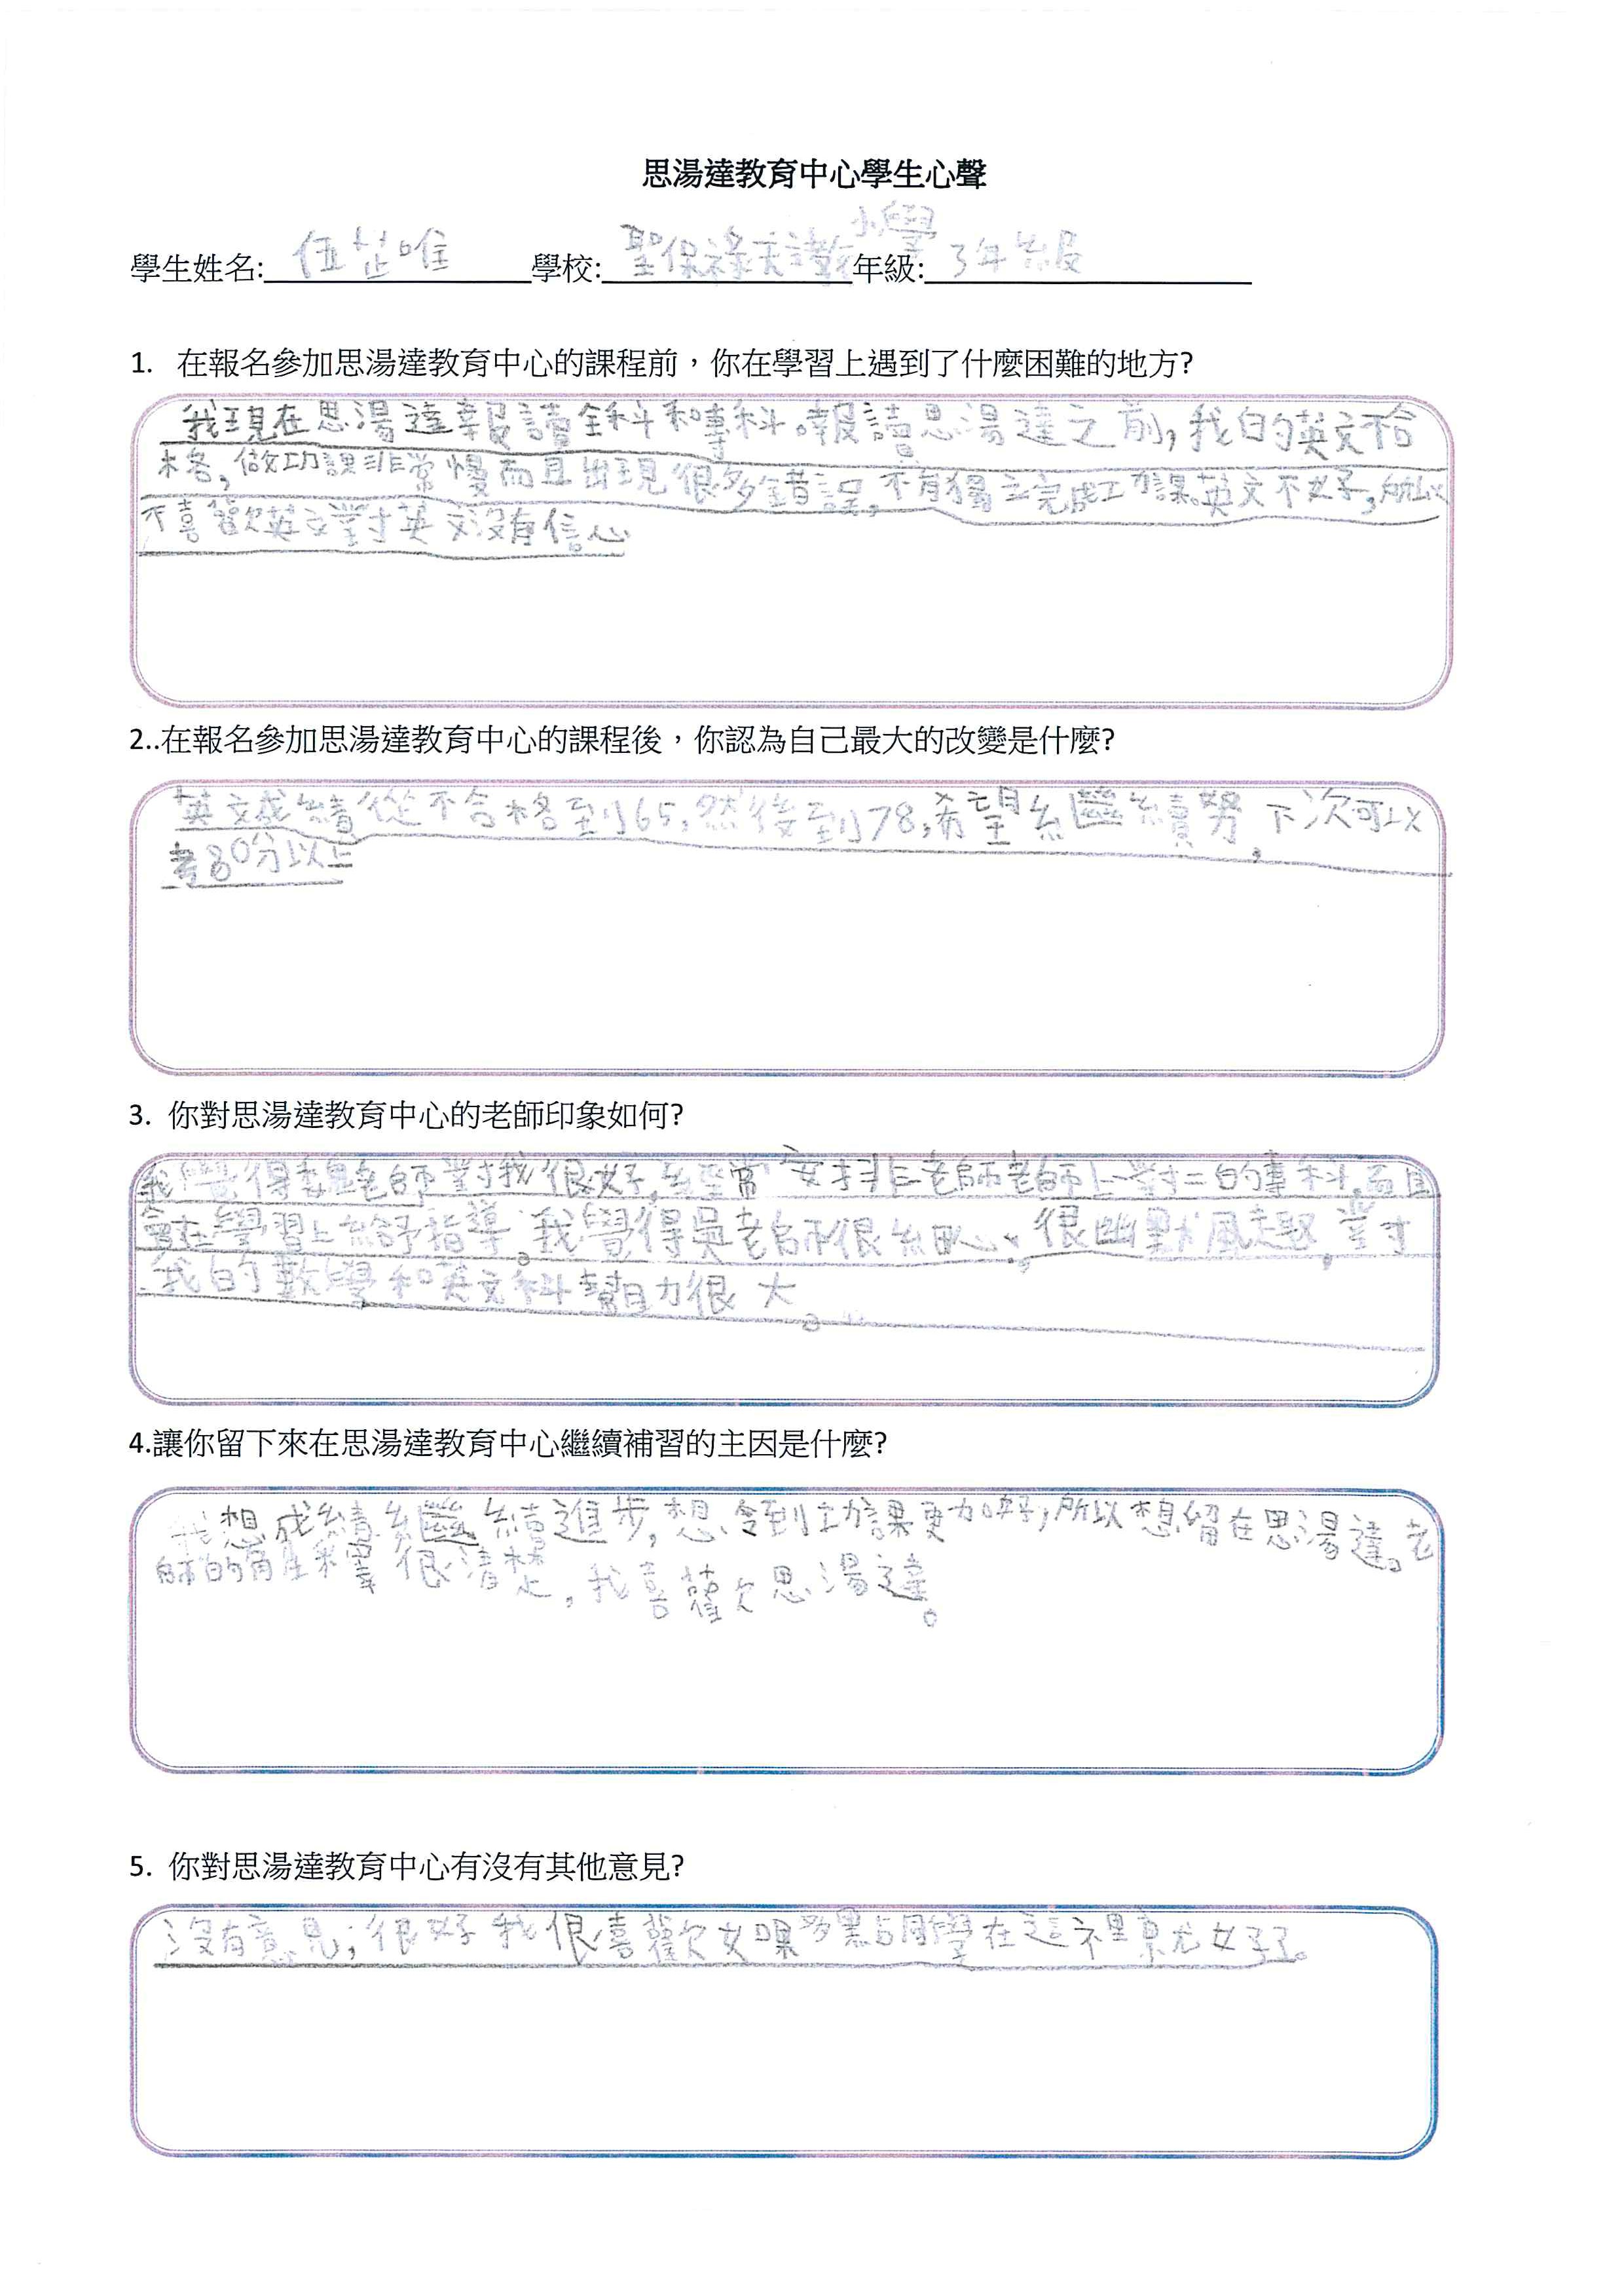 思湯達教育中心學生心聲
學生姓名: 伍芷唯 學校: 聖保祿天主教小學 年級: 3年級
1. 在報名參加思湯達教育中心的課程前，你在學習上遇到了什麼困難的地方?
我現在思湯達報讀全科和專科。報讀思湯達之前，我的英文不合
格，做功課非常慢而且出現很多錯誤，不肯獨立完成功課。英文不好，所以
不喜歡英文對英文沒有信心
2..在報名參加思湯達教育中心的課程後，你認為自己最大的改變是什麼?
英文成績從不合格到65，然後到78，希望繼續努，下次可以
考80分以上
3. 你對思湯達教育中心的老師印象如何?
我覺得老師對我很好，經常安排老師老師上一對二的專科。而且
會在學習上給予指導。我覺得吳老師很細心，很幽默風趣，對
我的數學和英文科幫助很大。
4.讓你留下來在思湯達教育中心繼續補習的主因是什麼?
我想成績繼續進步，想令到功課更加好，所以想留在思湯達。老
師的解釋很清楚，我喜歡思湯達。
5. 你對思湯達教育中心有沒有其他意見?
沒有意見；很好我很喜歡如果多點同學在這裡就好了。